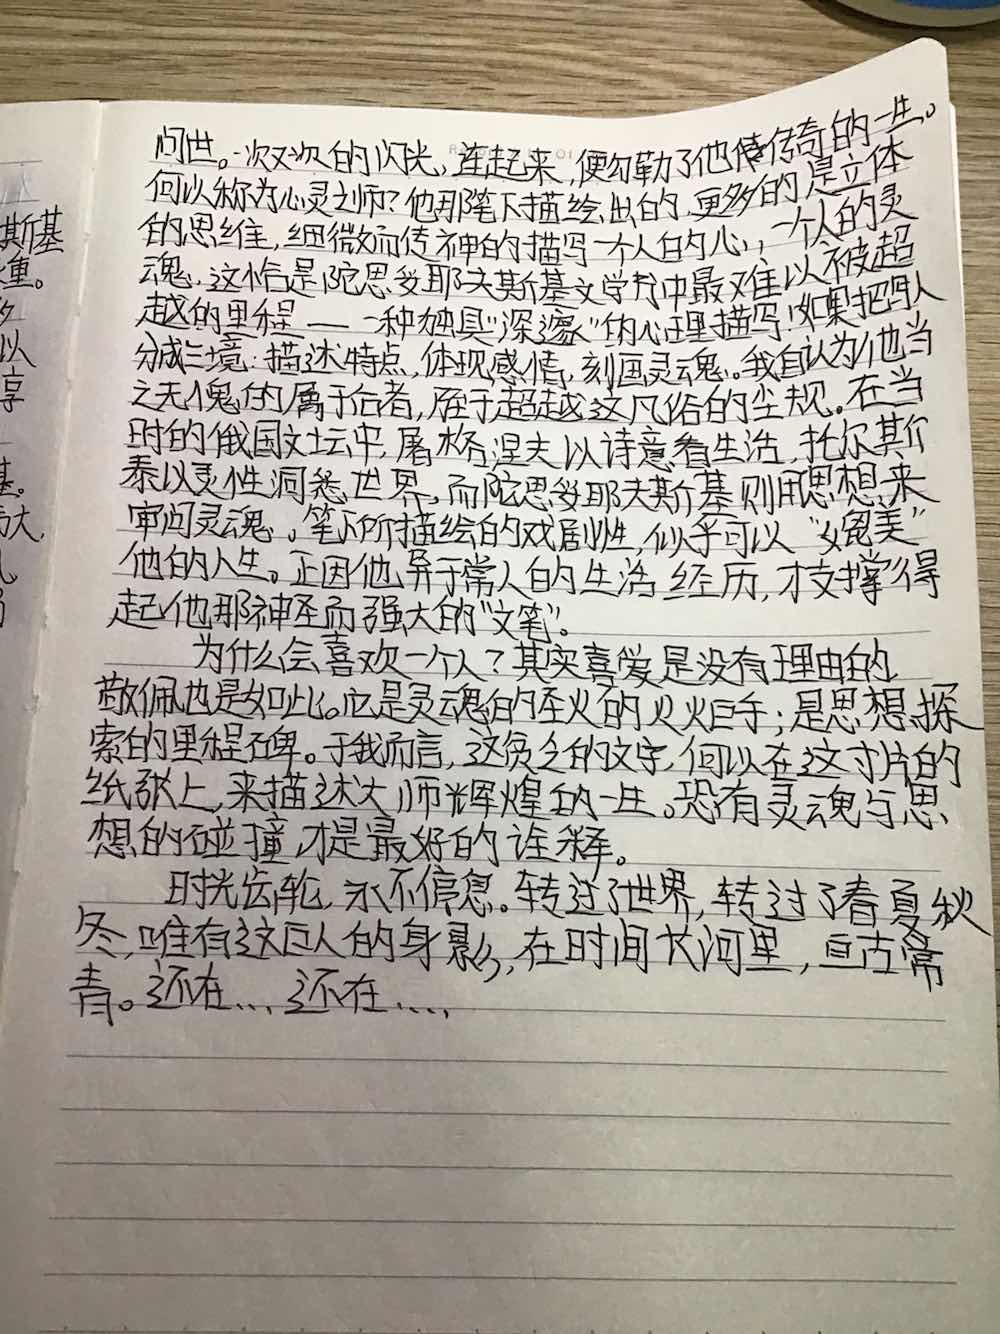 问世。一次又次的闪光，连起来，便勾勒了他传奇的一生。
何以称为心灵之师？他那笔下描绘出的，更多的是立体
的思维，细微而传神的描写一个人的心，一个人的灵
魂，这恰是陀思妥耶夫斯基文学中最难以被超
越的里程——一种独具"深邃"的心理描写。如果把写人
分成三境：描述特点，体现感情，刻画灵魂。我自认为他当
之无愧的属于后者，居于超越这凡俗的尘规。在当
时的俄国文坛中，屠格涅夫以诗意看生活，托尔斯
泰以灵性洞悉世界，而陀思妥耶夫斯基则用思想来
审问灵魂。笔下所描绘的戏剧性，似乎可以"媲美"
他的人生。正因他异于常人的生活经历，才支撑得
起他那神圣而强大的"文笔"。
为什么会喜欢一个人？其实喜爱是没有理由的
敬佩也是如此。它是灵魂的圣火的火炬手；是思想探
索的里程碑。于我而言，这贫乏的文字，何以在这寸片的
纸张上，来描述大师辉煌的一生。恐有灵魂与思
想的碰撞才是最好的诠释。
时光齿轮，永不停息。转过了世界，转过了春夏秋
冬，唯有这巨人的身影，在时间长河里，亘古常
青。还在… 还在….
斯基
重。
以
享
基。
大，